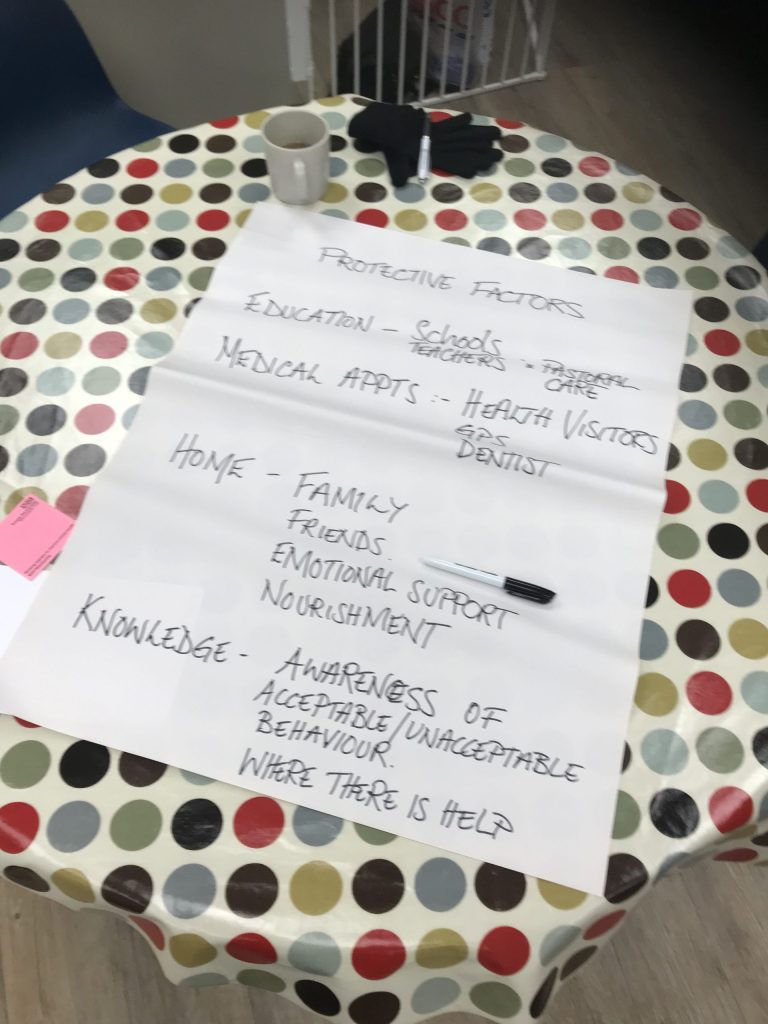 PROTECTIVE FACTORS
EDUCATION - Schools
TEACHERS - PASTORAL
CARE
MEDICAL APPTS :- HEALTH VISITORS
GPS
DENTIST
HOME - FAMILY
FRIENDS.
EMOTIONAL SUPPORT
NOURISHMENT
KNOWLEDGE - AWARENESS OF
ACCEPTABLE/UNACCEPTABLE
BEHAVIOUR.
WHERE THERE IS HELP